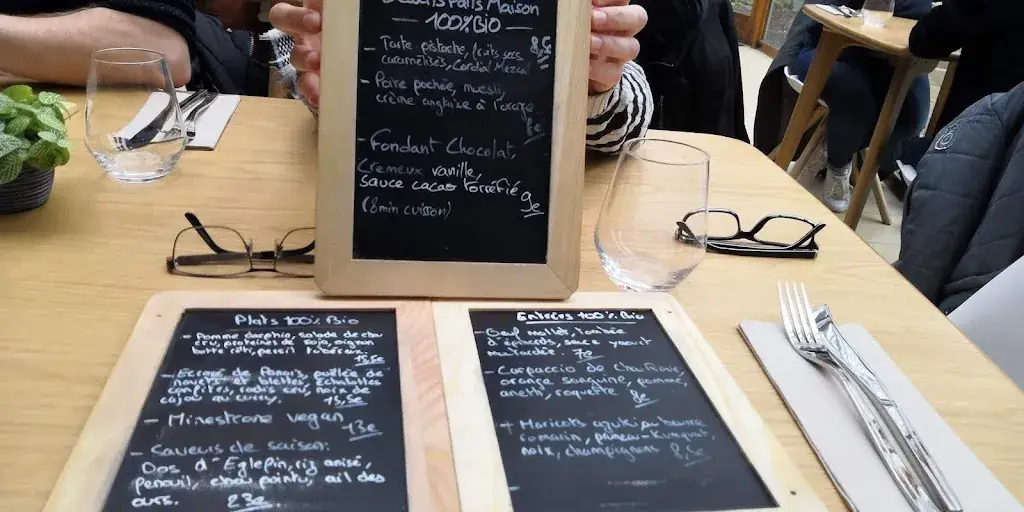 Maison
100% Bio
- Tarte pistache, fruits secs 8,5€
caramélisés, Cordial Mezcal
- Poire pochée, muesli,
crème anglaise à l'orange
8€
- Fondant Chocolat,
Cremeux vanille,
sauce cacao torréfié
(8min cuisson) 9€
Plats 100% Bio
- Pomme salade de chou
cru, protéines de soja, oignon
persil tubéreux. 15,5€
- Ecrasé de Panais, poêlée de
navets et blettes, échalottes
confites, radis cru, noix de
cajou au curry. 15,5€
- Minestrone vegan
13€
- Saveurs de saison:
Dos d'Eglefin, riz anisé,
fenouil, chou pointu, ail des
ours. 23€
Entrées 100% Bio
- Oeuf mollet, tombée
d'épinards, sauce yaourt
moutarde. 7€
- Carpaccio de Chou Rave
orange sanguine, pomme,
aneth, roquette 8€
+ Haricots azuki, beurre
romarin, Kumquat,
noix, champignons 8,5€